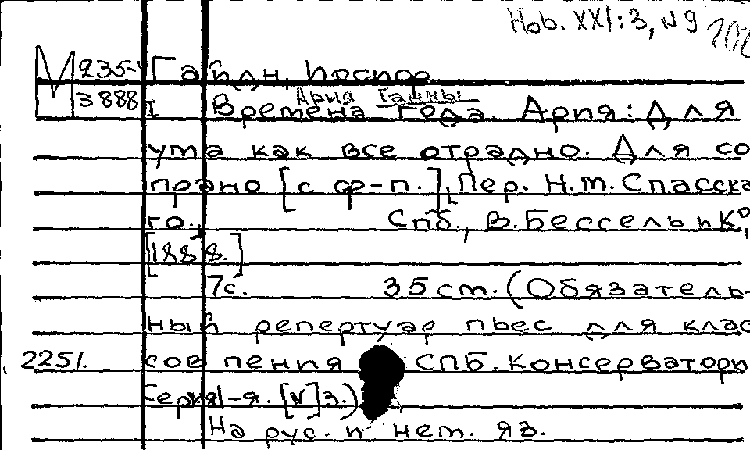 Hob. XXI:3, N9
М 235-
3888 Гайдн, Йосиф
Ария Ганны
I Времена года. Ария: Для
ума как все отрадно. Для со
прано [с ф-п.]. Пер. Н.М. Спасска
го. Спб., В. Бессель и К°,
[1888.]
7с. 35 см. (Обязатель-
ный репертуар пьес для клас
2251. сов пения СПБ. Консерватори
Серия I-я. [N] 3.)
На рус. и нем. яз.